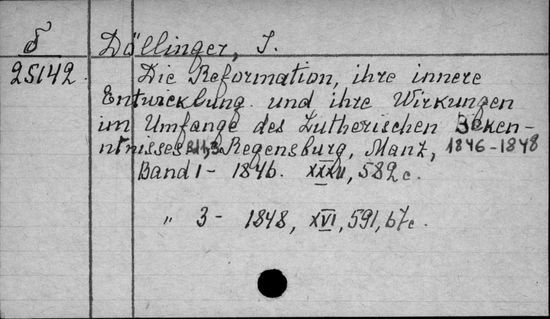 δ Döllinger, I.
25142. Die Reformation, ihre innere
Entwicklung und ihre Wirkungen
im Umfange des Lutherischen Beken-
ntnisses Regensburg, Manz, 1846-1848
Band 1 - 1846. 582 c.
„ 3 - 1848, XVI, 591, 67c.